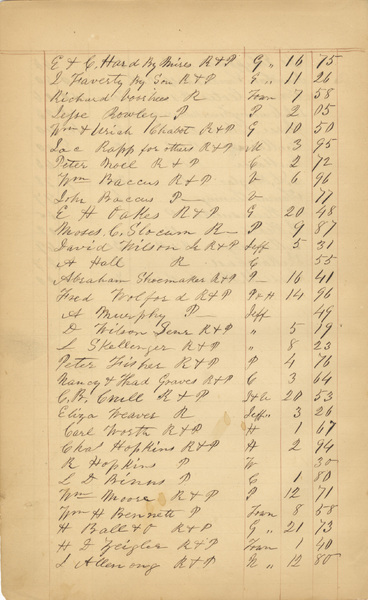 E & C. Hard By Mires R & P G " 16 75
I Faverty By Son R & P G " 11 26
Richard Voorhees R Fran 7 58
Jesse Rowley P P 2 05
Wm & Uriah Chabot R & P G 10 50
Isac Rapp for others R & P M 3 95
Peter Noel R & P C 2 72
Wm Baccus R & P V 6 96
John Baccus P V 77
E H Oakes R & P G 20 48
Moses C. Slocum R P 9 87
David Wilson Jr R & P Jeff 5 31
A Hall R C 55
Abraham Shoemaker R & P P 16 41
Fred Wolford R & P P & H 14 96
A Murphy P Jeff 49
D Wilson Senr R & P " 5 19
L Skellenger R & P " 8 23
Peter Fisher R & P P 4 76
Nancy & Thad Graves R & P C 3 64
C. B. R & P 20 53
Eliza Weaver R Jeffn 3 26
Carl Worth R & P H 1 67
Chas Hopkins R & P H 2 94
R Hopkins P W 30
L D Binns P C 1 80
Wm Moore R & P P 12 71
Wm H Bennett P Fran 8 58
H Ball & O R & P G " 21 73
H D Zeigler R & P Fran 1 40
J Allenong R & P N " 12 80